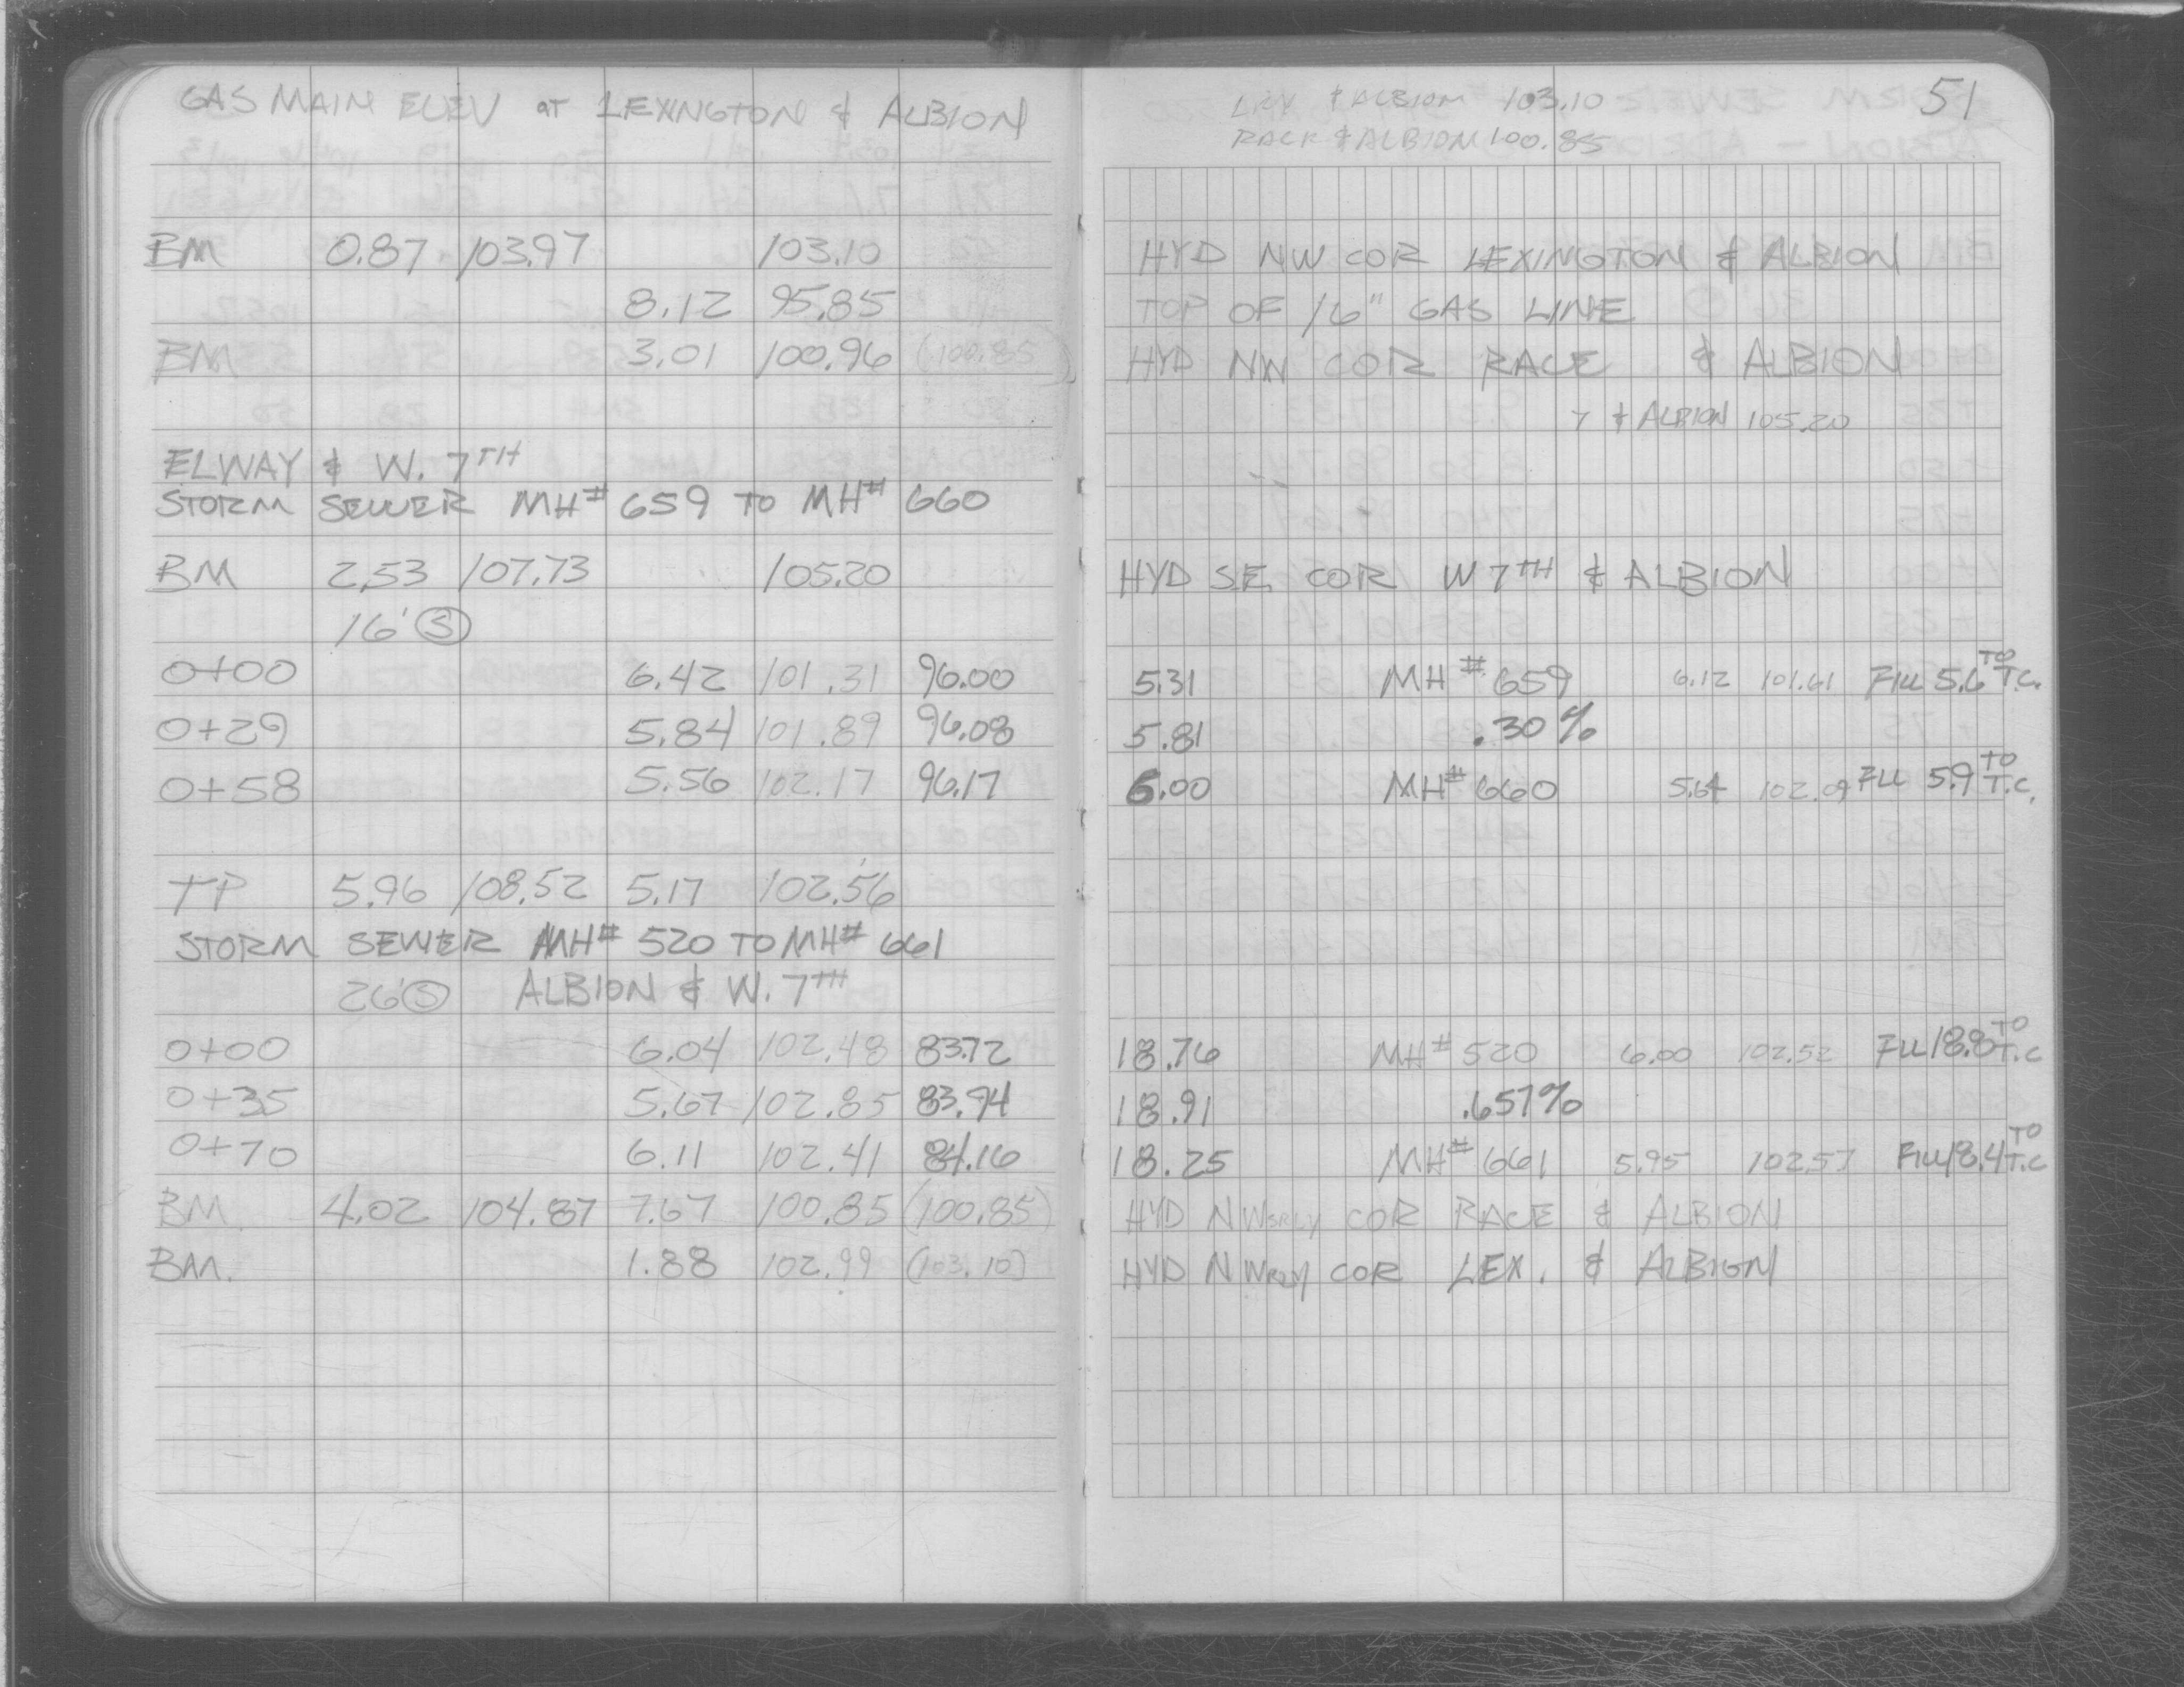 GAS MAIN ELEV at LEXINGTON & ALBION
BM 0.87 103.97 103.10
8.12 95.85
BM 3.01 100.96 (100.85)
ELWAY & W. 7TH
STORM SEWER MH# 659 TO MH# 660
BM 2.53 107.73 105.20
16' S
0+00 6.42 101.31 96.00
0+29 5.84 101.89 96.08
0+58 5.56 102.17 96.17
TP 5.96 108.52 5.17 102.56
STORM SEWER MH# 520 TO MH# 661
26' S ALBION & W. 7TH
0+00 6.04 102.48 83.72
0+35 5.67 102.85 83.94
0+70 6.11 102.41 84.16
BM 4.02 104.87 7.67 100.85 (100.85)
BM. 1.88 102.99 (103.10)
51
LEX & ALBION 103.10
RACE & ALBION 100.85
HYD NW COR LEXINGTON & ALBION
TOP OF 16" GAS LINE
HYD NW COR RACE & ALBION
7 & ALBION 105.20
HYD S.E. COR W 7TH & ALBION
5.31 MH# 659 6.12 101.61 FILL 5.6 TO T.C.
5.81 .30%
6.00 MH# 660 5.64 102.09 FILL 5.9 TO T.C.
18.76 MH# 520 6.00 102.52 FILL 18.8 TO T.C
18.91 .657%
18.25 MH# 661 5.95 102.57 FILL 18.4 TO T.C
HYD NWSRLY COR RACE & ALBION
HYD NWRLY COR LEX. & ALBION